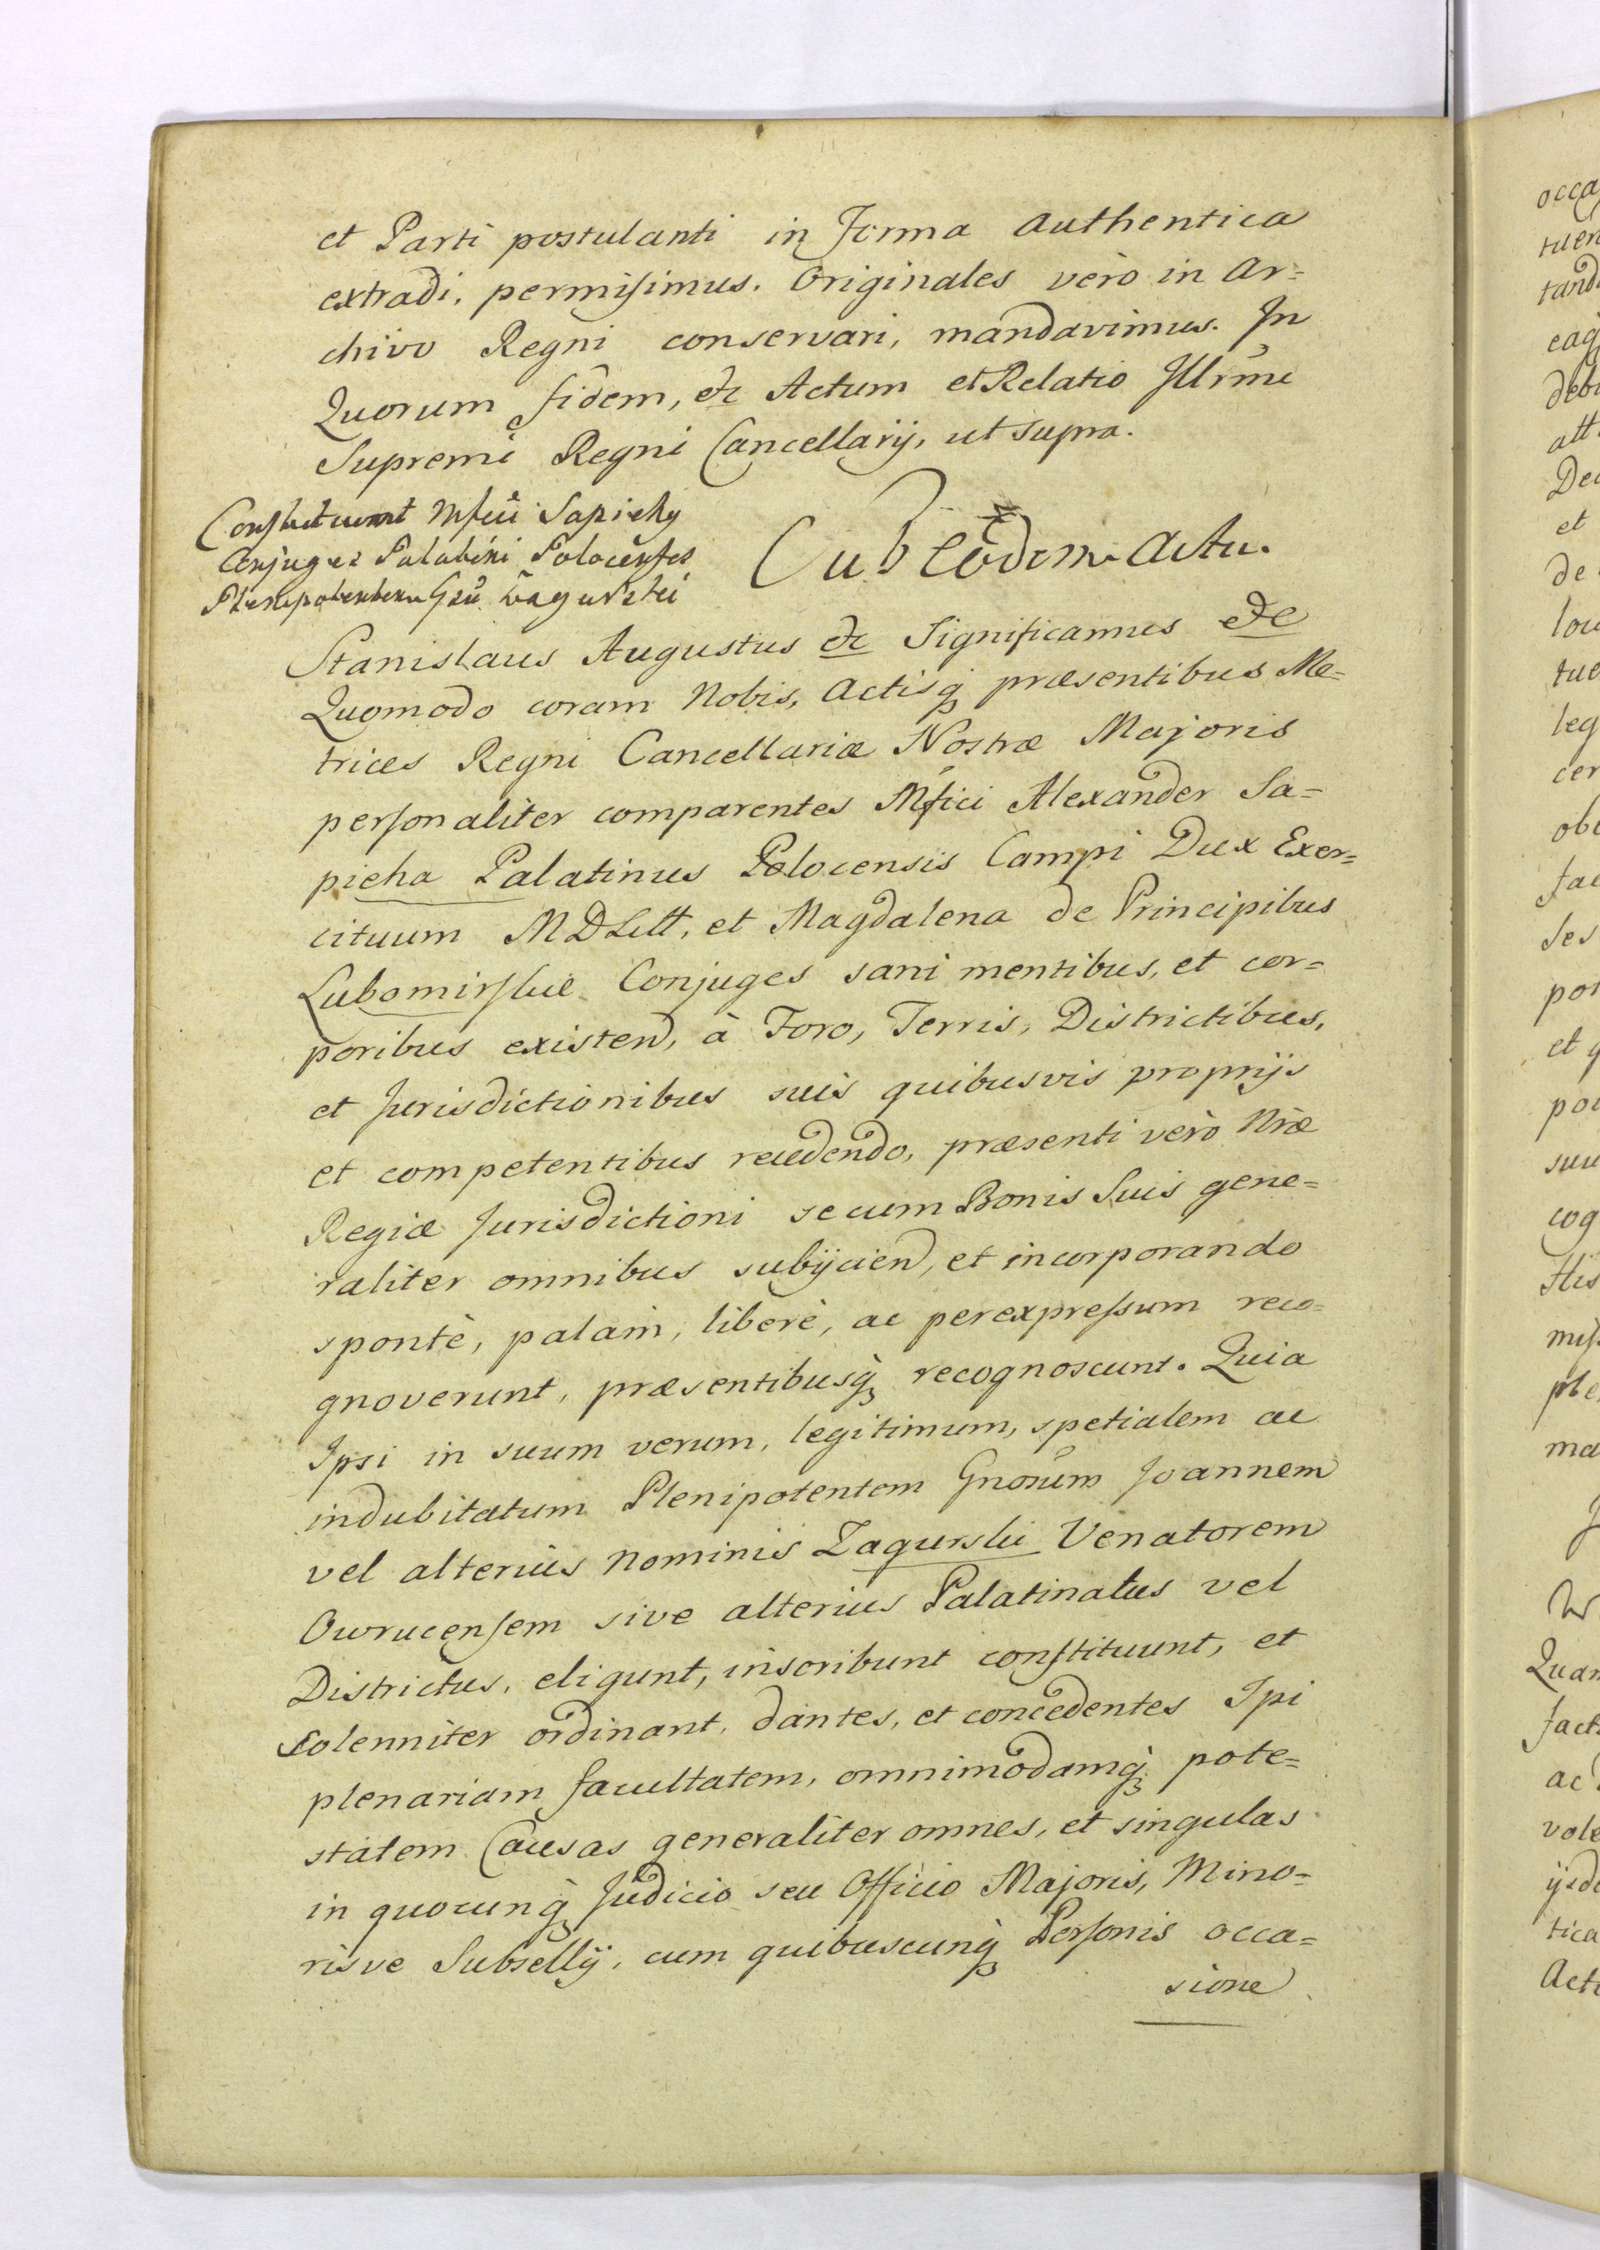 et Parti postulanti in Forma authentica
extradi, permisimus. Originales verò in Ar=
chivo Regni conservari, mandavimus. In
Quorum fidem, &c Actum et Relatio Illrmi
Supremi Regni Cancellarij, ut supra.
Constituunt Mfici Sapiehy
Conjuges Palatini Polocenses
Plenipotentem Gsũ Zagurski
Sub eodem Actu.
Stanislaus Augustus &c Significamus &c
Quomodo coram Nobis, Actisq̃ præsentibus Me=
trices Regni Cancellariæ Nostræ Majoris
personaliter comparentes Mfici Alexander Sa=
pieha Palatinus Polocensis Campi Dux Exer=
cituum MDLitt, et Magdalena de Principibus
Lubomirskie Conjuges sani mentibus, et cor=
poribus existen, à Foro, Terris, Districtibus,
et Jurisdictionibus suis quibusvis proprijs
et competentibus recedendo, præsenti verò Nræ
Regiæ Jurisdictioni se cum Bonis Suis gene=
raliter omnibus subijcien, et incorporando
spontè, palàm, liberè, ac per expressum reco=
gnoverunt, præsentibusq̃ recognoscunt. Quia
Ipsi in suum verum, legitimum, spetialem ac
indubitatum Plenipotentem Gnosum Joannem
vel alterius Nominis Zagurski Venatorem
Owrucensem sive alterius Palatinatus vel
Districtus, eligunt, inscribunt constituunt, et
solenniter ordinant, dantes, et concedentes Ipi
plenariam facultatem, omnimodamq̃ pote=
statem Causas generaliter omnes, et singulas
in quocunq̃ Judicio seu Officio Majoris, Mino=
risve Subsellij, cum quibuscunq̃ Personis occa=
sione